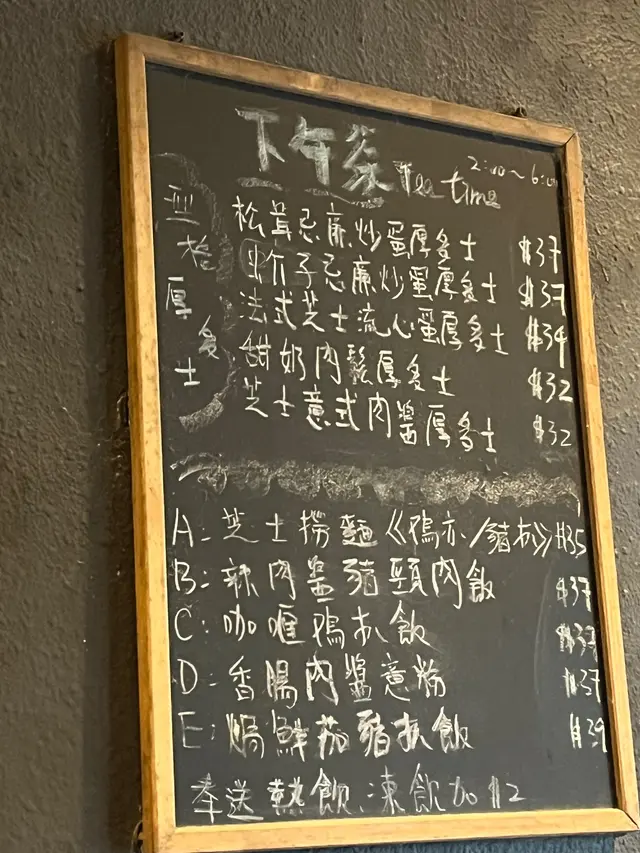 下午茶 Tea time 2:00~6:00
厚多士
松茸忌廉炒蛋厚多士 $37
芥子忌廉炒蛋厚多士 $37
法式芝士流心蛋厚多士 $34
甜奶肉鬆厚多士 $32
芝士意式肉醬厚多士 $32
A: 芝士撈麵《鴨亦/豬扒》$35
B: 辣肉醬豬頸肉飯 $37
C: 咖喱鴨扒飯 $37
D: 香腸肉醬意粉 $37
E: 焗鮮茄豬扒飯 $39
奉送熱飲、凍飲加$2